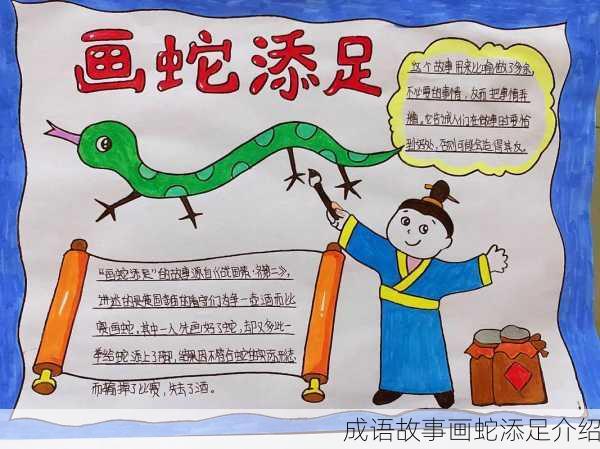 画蛇添足
这个故事用来比喻做了多余
不必要的事情,反而把事情弄
糟。它告诫人们在做事时要恰
到好处,否则可能会适得其反。
"画蛇添足"的故事源自《战国策·齐策二》,
讲述的是楚国
们为争一壶酒而比
赛画蛇,其中一人先画好了蛇,却又多此一
举给蛇添上了脚,结果因不符合蛇的实际形态
而输掉了比赛,失去了酒。
成语故事画蛇添足介绍